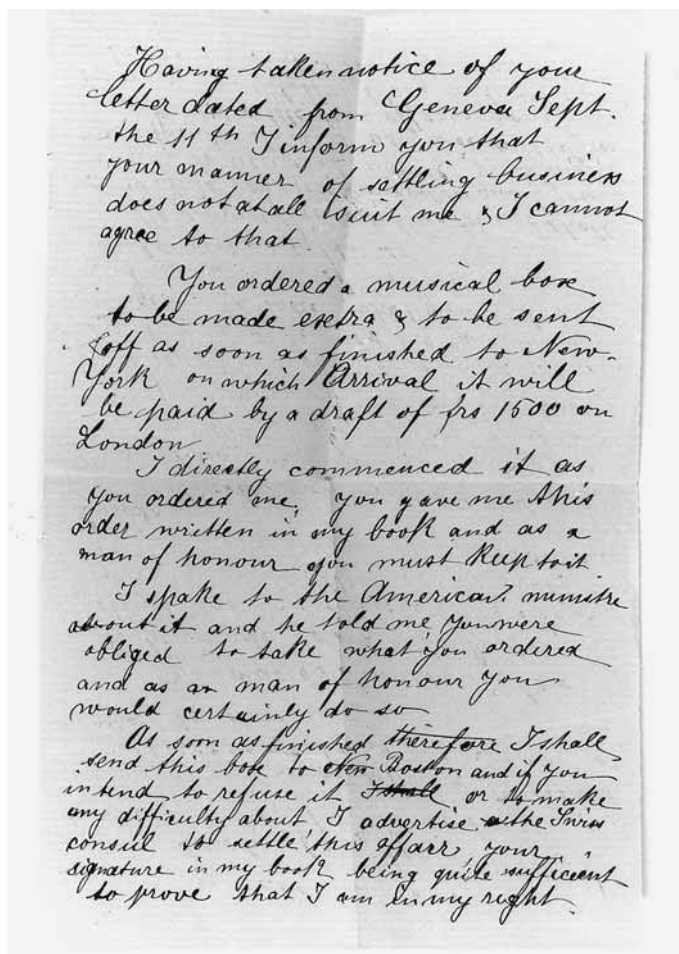 Having taken notice of your
letter dated from Geneva Sept.
the 11th I inform you that
your manner of settling business
does not at all suit me & I cannot
agree to that.
You ordered a musical box
to be made extra & to be sent
off as soon as finished to New-
York on which Arrival it will
be paid by a draft of frs 1500 on
London
I directly commenced it as
you ordered me, you gave me this
order written in my book and as a
man of honour you must keep to it
I spake to the American ministre
about it and he told me you were
obliged to take what you ordered
and as an man of honour you
would certainly do so
As soon as finished therefore I shall
send this box to New Boston and if you
intend to refuse it I shall or to make
any difficulty about I advertise the Swiss
consul to settle this affarr your
signature in my book being quite sufficient
to prove that I am in my right.